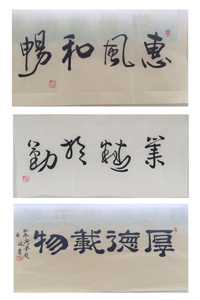 惠風和暢
業精於勤
厚德載物